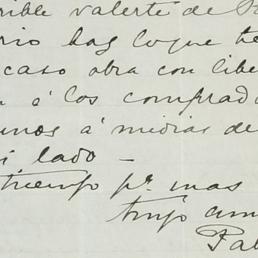 rible valerte de
rio has loque te
caso obra con libe
a á los comprado
unos á medias de
i lado —
tiempo pr. mas
tuyo am
Pab